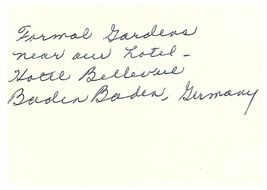 Formal Gardens
near our hotel -
Hotel Bellevue
Baden Baden, Germany